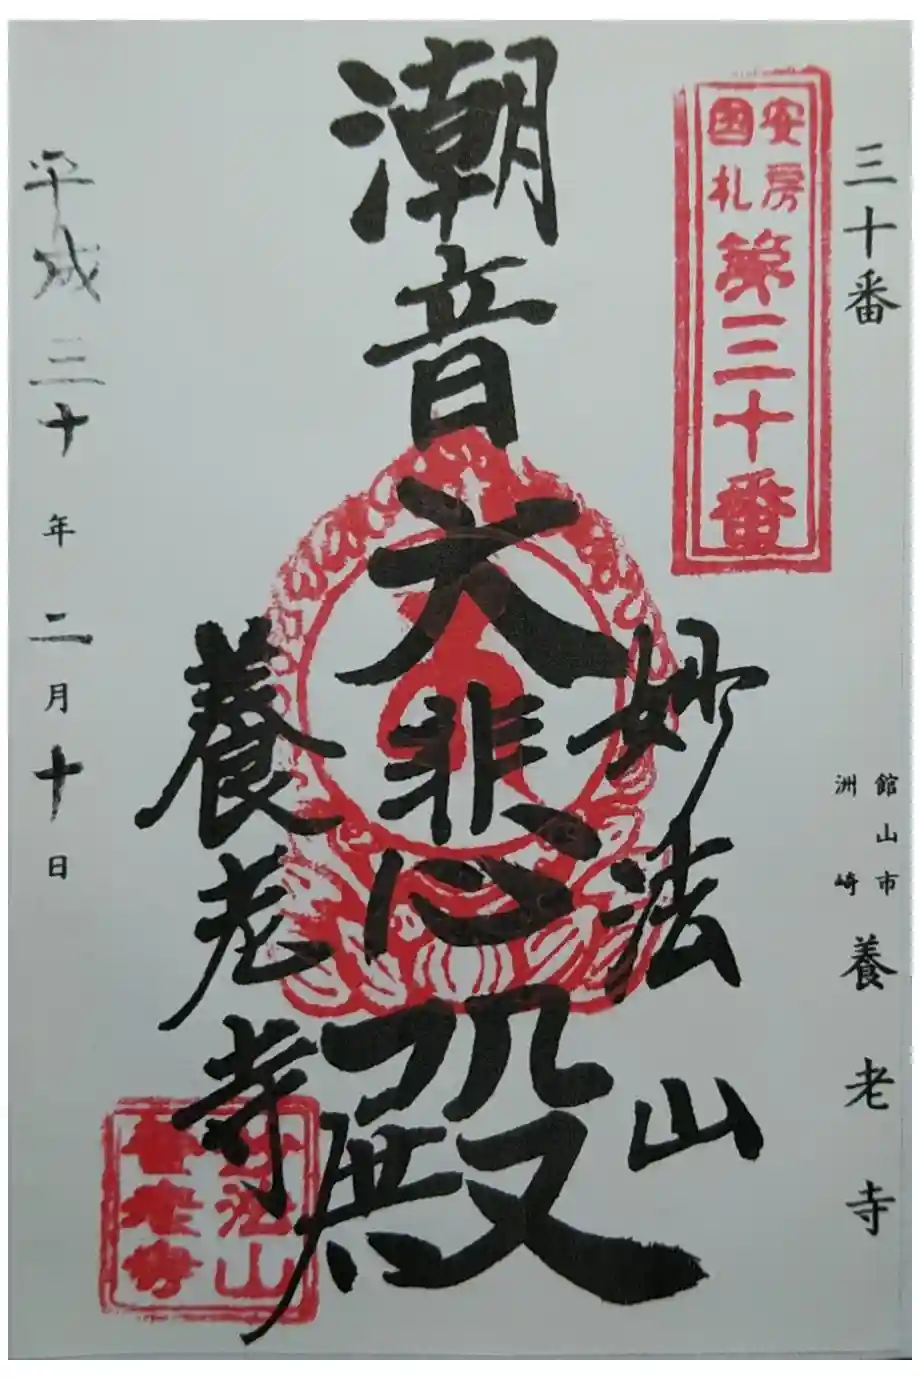 三十番
館山市
洲崎
養老寺
安房
國札
第三十番
妙法山
潮音
大悲心殿
養老寺
妙法山
養老寺
平成三十年二月十日